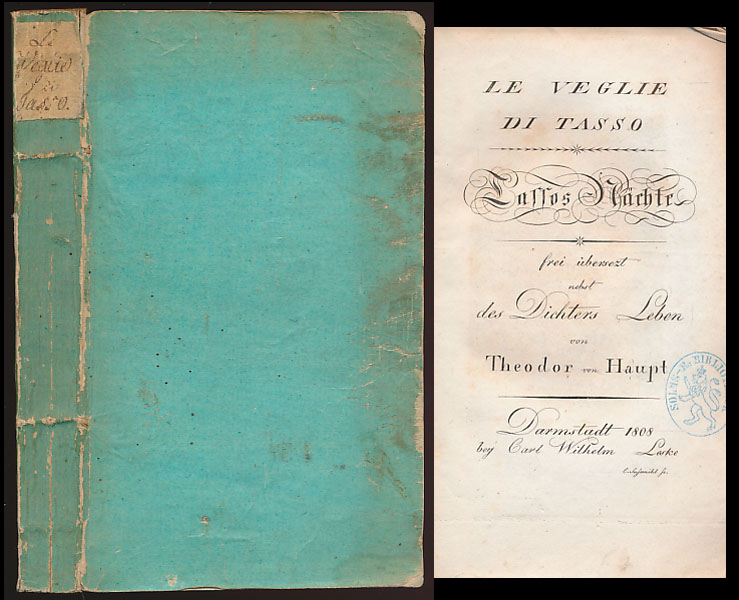 Le
Veglie
di
Tasso.
LE VEGLIE
DI TASSO
Tassos Nächte
frei übersezt
nebst
des Dichters Leben
von
Theodor von Haupt
Darmstadt 1808
bey Carl Wilhelm Leske
SOLMS-R. BIBLIO